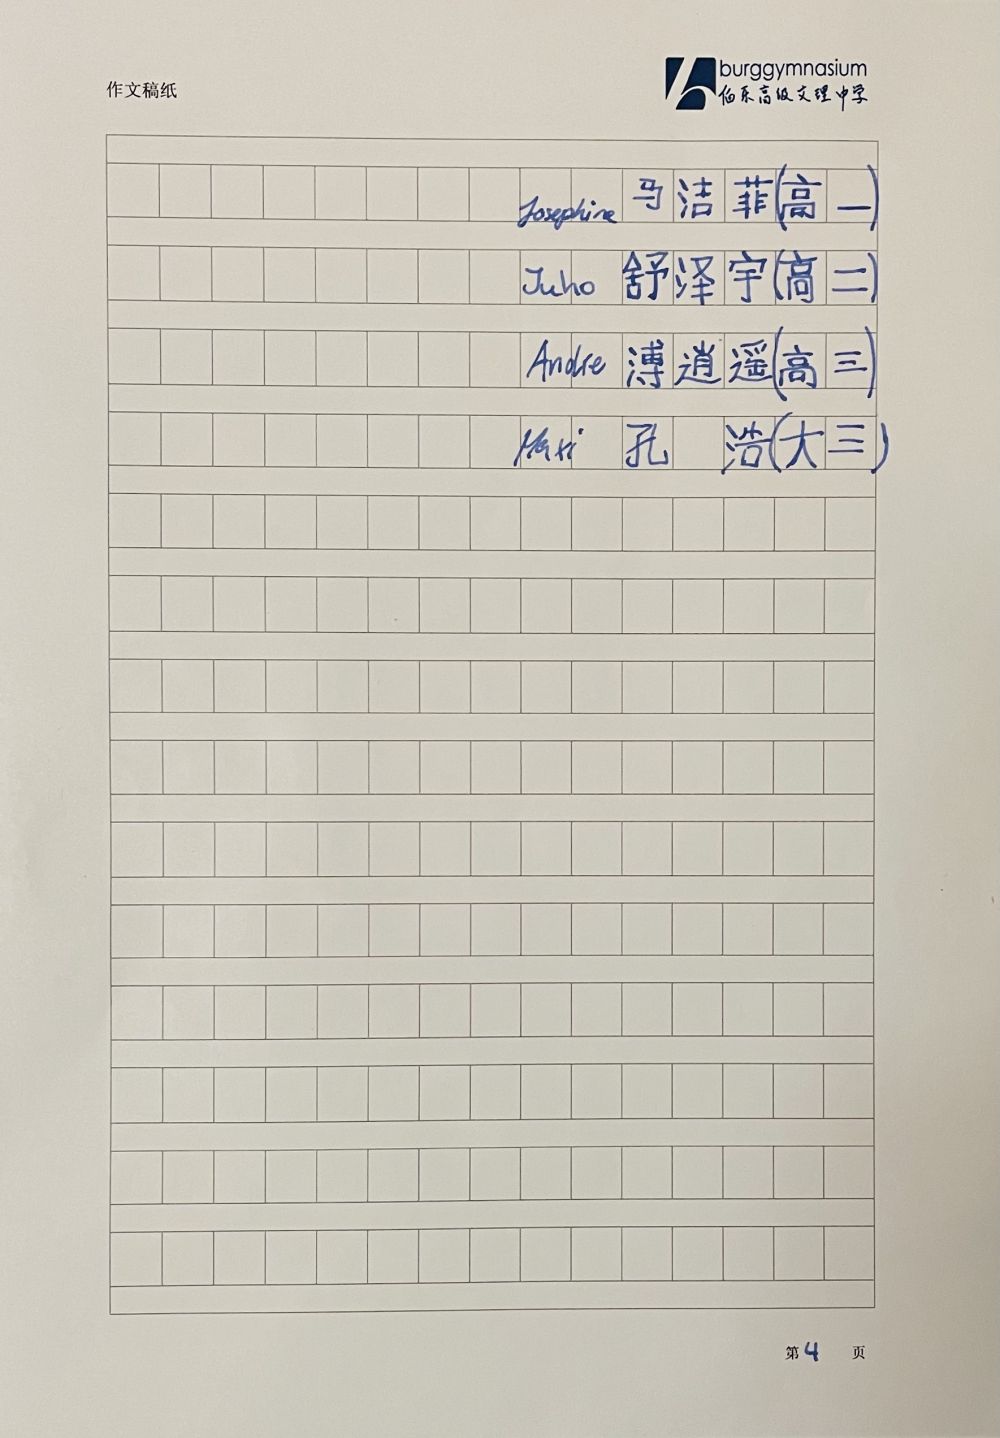 作文稿纸
burggymnasium
伯乐高级文理中学
Josephine 马洁菲(高一)
Juho 舒泽宇(高二)
Andre 溥逍遥(高三)
Maxi 孔 浩(大三)
第4 页